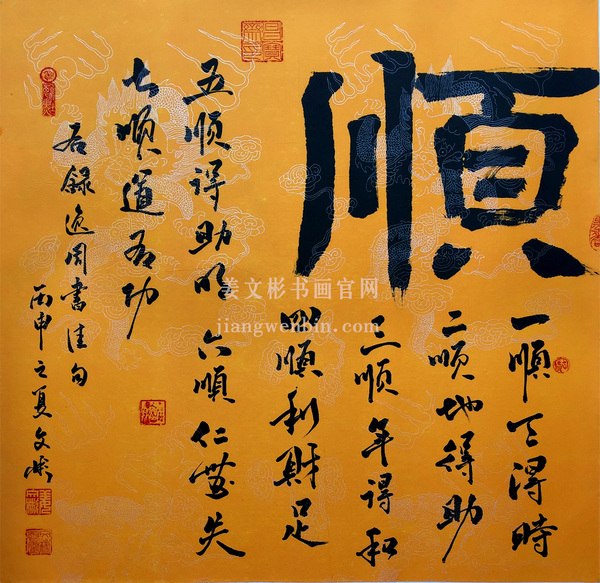 順
一順天得時
二顺地得助
三顺年得和
四順利財足
五顺得助明六順仁無失
七顺道有功
右錄逸周書佳句
丙申之夏文彬
姜文彬书画官网
jiangwenbin.com